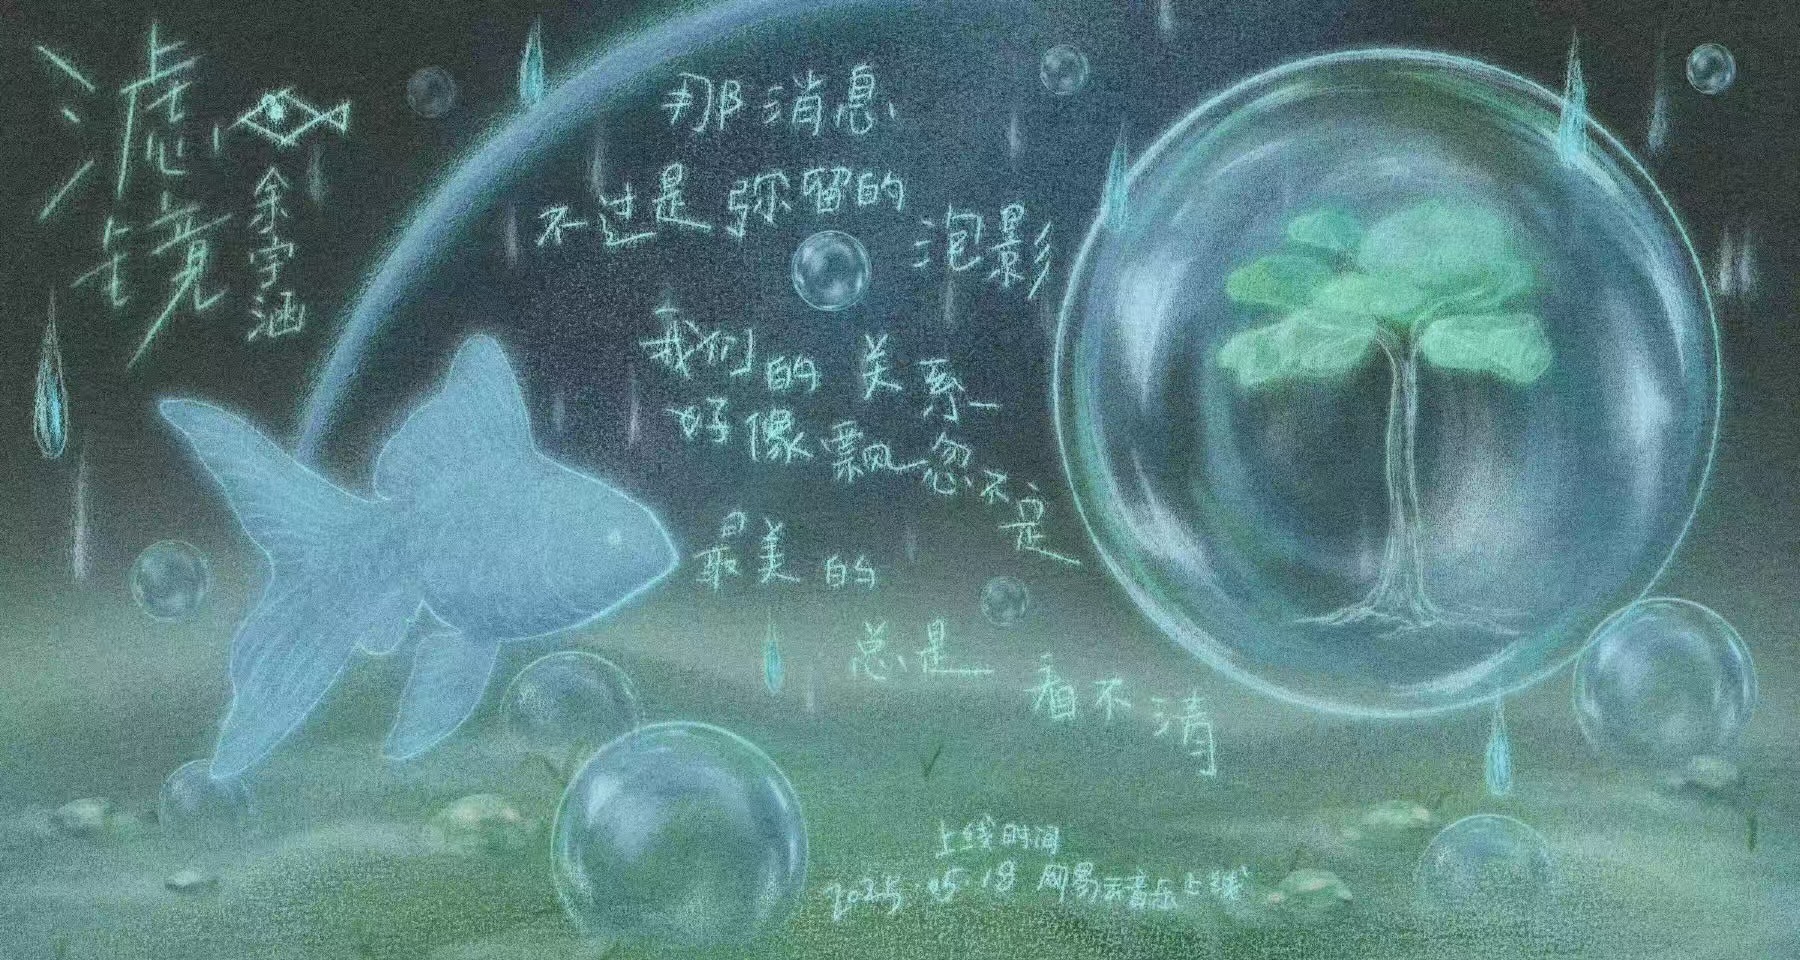 滤镜
余宇涵
那消息
不过是弥留的泡影
我们的关系
好像飘忽不定
最美的
总是看不清
上线时间
2025.05.18 网易云音乐上线